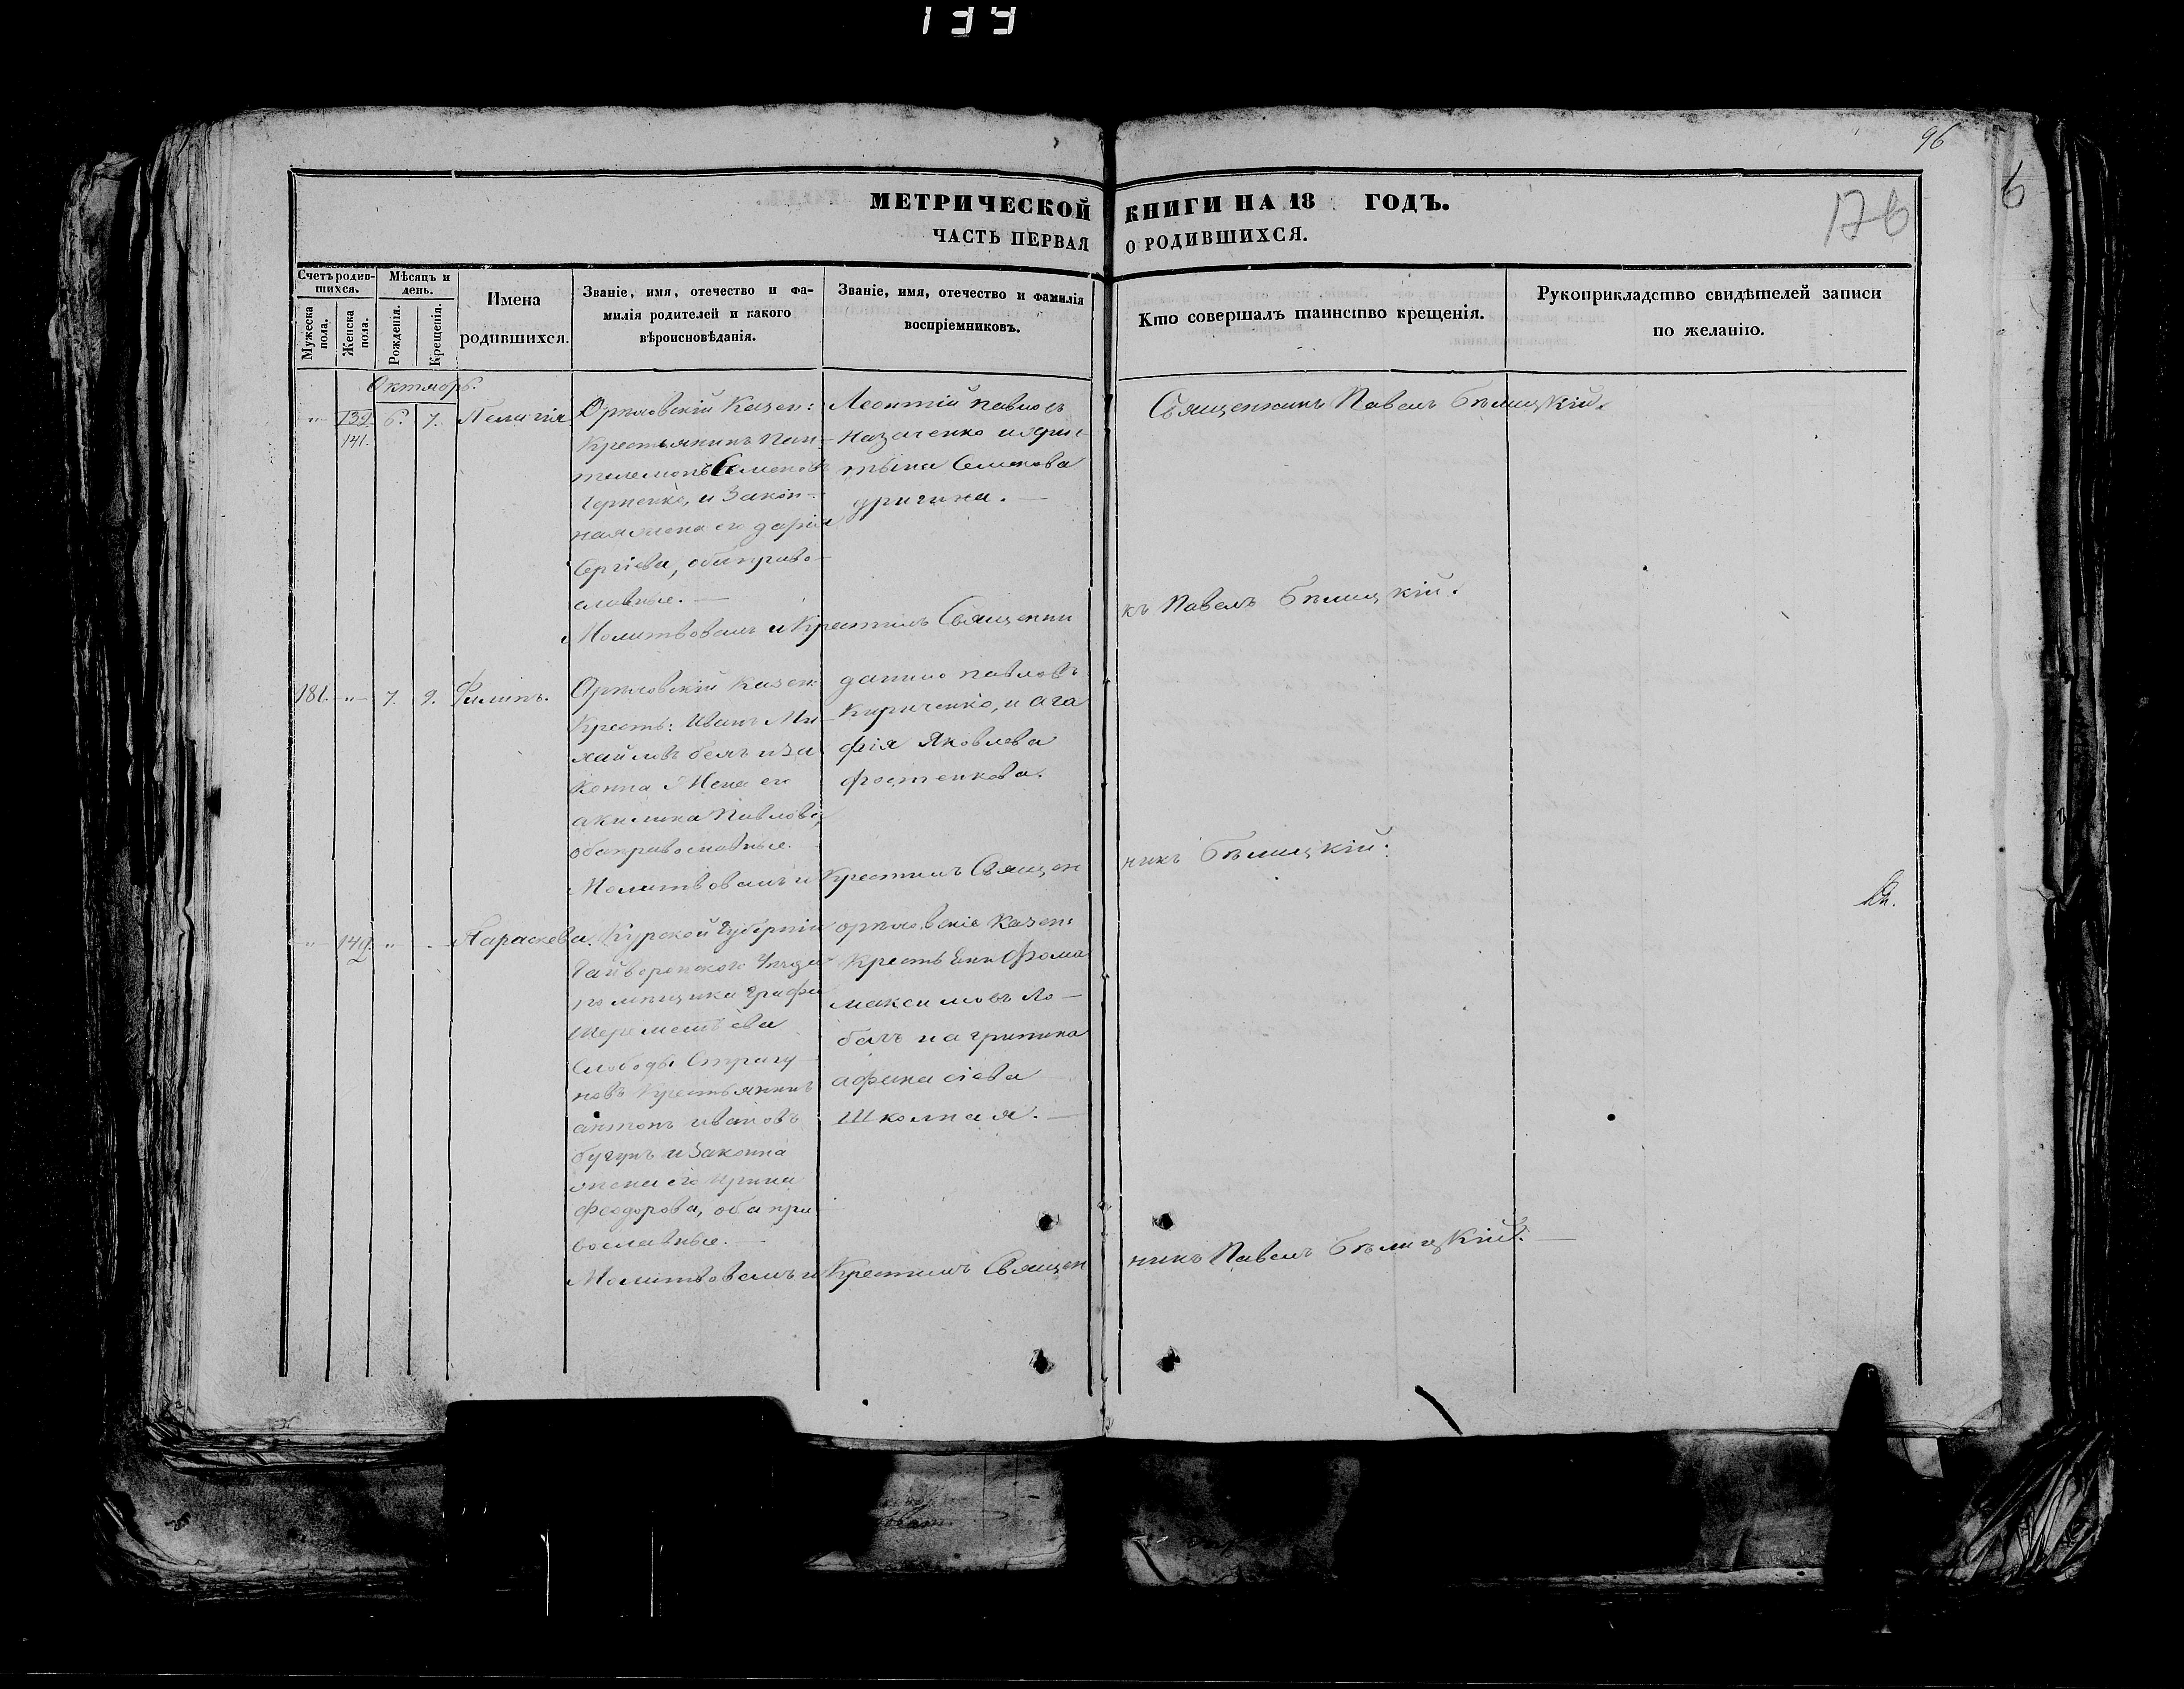 139
96
6
176
МЕТРИЧЕСКОЙ КНИГИ НА 18 ГОДЪ.
ЧАСТЬ ПЕРВАЯ О РОДИВШИХСЯ.
Счетъ родившихся.
Мужеска пола.
Женска пола.
Мѣсяцъ и день.
Рожденія.
Крещенія.
Имена родившихся.
Званіе, имя, отечество и фамилія родителей и какого вѣроисновѣданія.
Званіе, имя, отечество и фамилія воспріемниковъ.
Кто совершалъ таинство крещенія.
Рукоприкладство свидѣтелей записи по желанію.
Октяорь.
" 139 6. 7. Пелагія
141.
Орѣловскій Казен:
Крестьянинъ Пан-
телемонъ Семеновъ
и Закон-
ная жена его дарія
Сергіева, оба право-
славные. —
Леонтій павловъ
Назаренко и хрис-
тына Семенова
Священникъ Павелъ Бѣлицкій.
Молитвовалъ и Крестилъ Священникъ Павелъ Бѣлицкій.
181. " 7. 9. Филипъ.
Орѣловскій казен:
Кресть: Иванъ Ми-
хайловъ и за
конна Жена его
акилина Павлова,
оба православные.
данило павловъ
Кириченко, и ага
фія Яковлева
Молитвовалъ и Крестилъ Священникъ Бѣлицкій.
" " Параскева.
Курской Губерніи
Гайворонского Уѣзда
помѣщика Графа
Шереметѣева
Слободы Стригу-
новъ Крестьянинъ
антонъ ивановъ
и Законна
жена его ирина
феодорова, оба пра
вославные. —
орѣловскіе Казен:
Крестьяни Фома
максимовъ Ло-
и агрипина
афанасіева
Школная. —
Молитвовалъ и Крестилъ Священникъ Павелъ Бѣлицкій. —